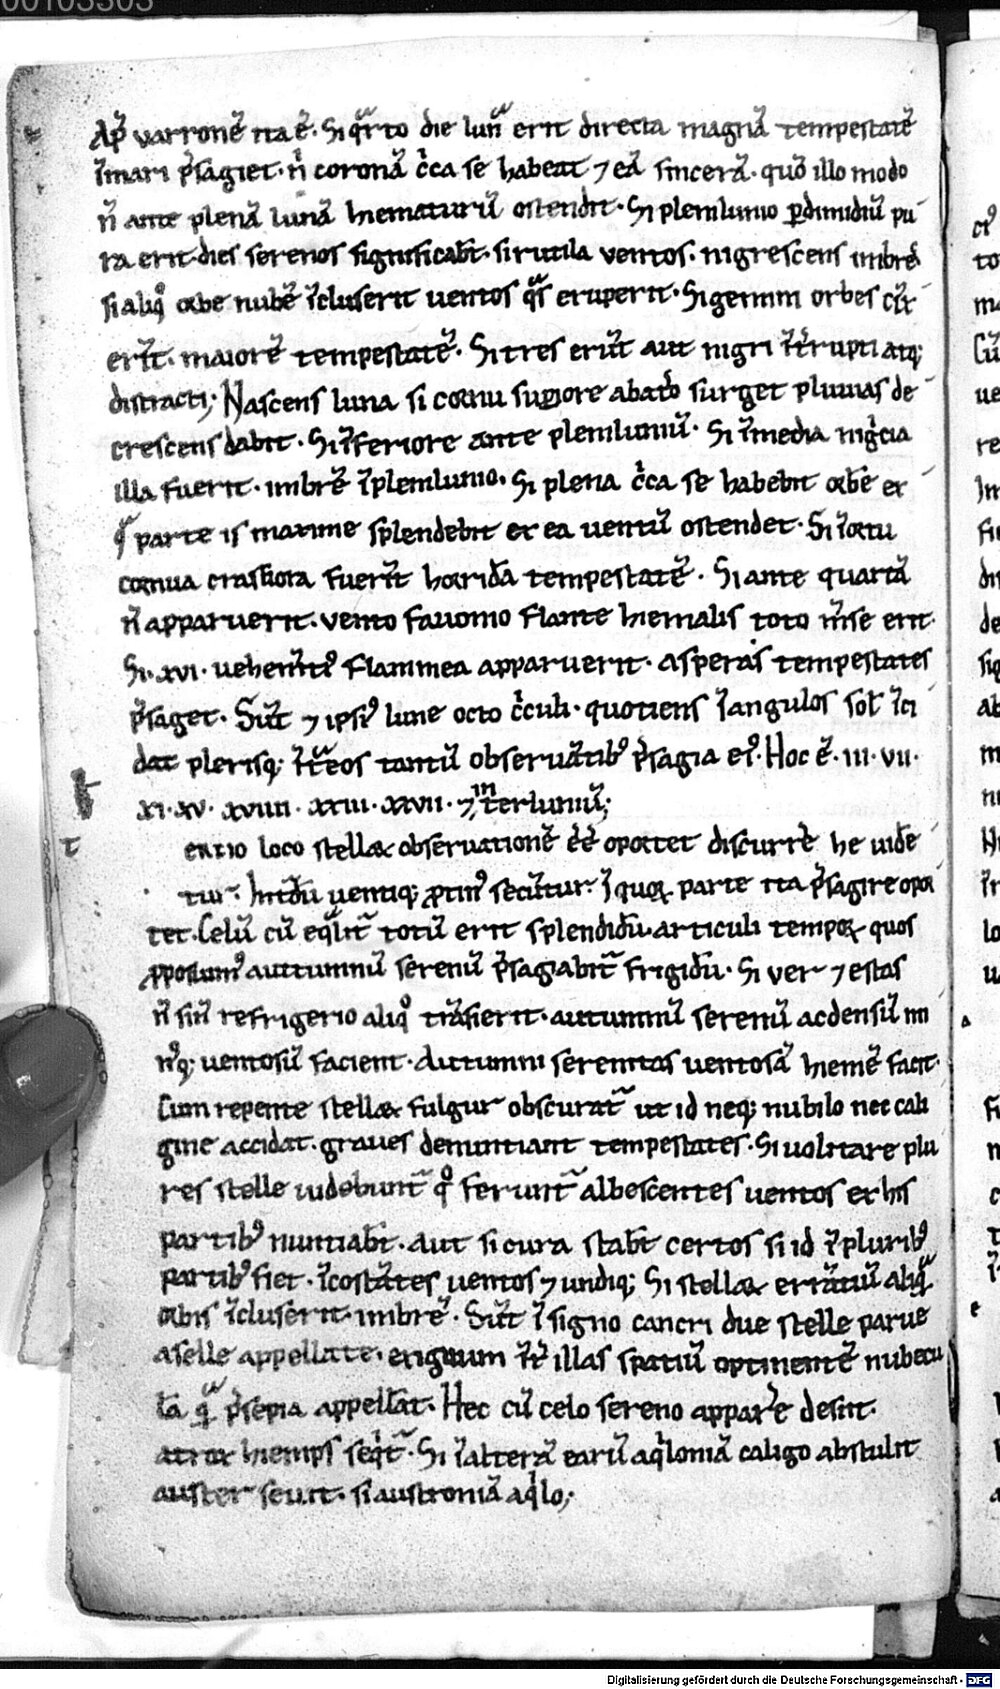 00103303
Ap̄ varronē ita ē. Si q̄rto die lun̄ erit directa magnā tempestatē
ī mari p̄sagiet. n̄ coronā c̄ca se habeat ⁊ eā sincerā. quō illo modo
n̄ ante plenā lunā hiematurū ostendit. Si plenilunio ꝑ dimidiū pu
ra erit dies serenos significab̄t. si rutila ventos. nigrescens imbres
si aliq̊ orbe nubē īcluserit uentos q̄s eruperit. Si gemini orbes cīx̄
er̄īt. maiorē tempestatē. Si tres erūt aut nigri īt̄rupti atq;
distracti; Nascens luna si cornu suꝑiore abato surget pluuias de
crescens dabit. Si īferiore ante pleniluniū. Si ī media nig̊cia
illa fuerit. imbrē ī plenilunio. Si plena c̄ca se habebit orbē ex
q̄ parte is maxime splendebit ex ea uentū ostendet. Si ī ortu
cornua crassiora fuer̄īt horridā tempestatē. Si ante quartā
n̄ apparuerit. vento fauonio flante hiemalis toto m̄se erit.
Si. xvi. uehem̄tiꝰ flammea apparuerit. asperas tempestates
p̄saget. Sūt ⁊ ipsiꝰ lune octo c̄culi. quotiens ī angulos sol̄ īci
dat plerisq; īt̄ eos tantū obseruātibꝰ p̄sagia eiꝰ. Hoc ē. iii. vii.
xi. xv. xviiii. xxiii. xxvii. ⁊ īnterluniū;
t ertio loco stellaꝝ obseruationē ēē oportet discurrē he uidē
tur̄. Int̄dū uentiq; ꝓtinꝰ secūtur. ī quoꝝ parte ita p̄sagire opor
tet. Celū cū eq̄lit̄ totū erit splendidū articuli tempoꝝ quos
ꝓposuimꝰ auttumnū serenū p̄sagabit̄ frigidū. Si ver ⁊ estas
n̄ sin̄ refrigerio aliq̊ tr̄āsierit. autumnū serenū ac densū mi
nꝰq; uentosū facient. Autumni serenitas uentosā hiemē facit.
Cum repente stellaꝝ fulgur obscurat̄ ut id neq; nubilo nec cali
gine accidat. graues denuntiant tempestates. Si uolitare plu
res stelle uidebunt̄ q̊ ferunt̄ albescentes uentos ex his
partibꝰ nuntiab̄t. Aut si cura stab̄t certos si id ī pluribꝰ
partibꝰ fiet. īcostātes uentos ⁊ undiq; Si stellaꝝ errātiū aliq̄
orbis īcluserit. imbrē. Sūt ī signo cancri due stelle parue
aselle appellate. exiguum īt̄ illas spatiū optinentē nubecu
la q̄ p̄sepia appell̄at. Hec cū celo sereno apparē desiit.
atrox hiemps seq̄t̄. Si ī alterā earū aq̄loniā caligo abstulit
auster seuit. si austroniā aq̄lo;
Digitalisierung gefördert durch die Deutsche Forschungsgemeinschaft - DFG